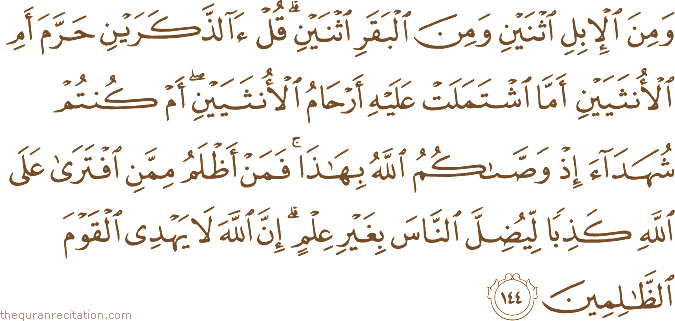 وَمِنَ ٱلْإِبِلِ ٱثْنَيْنِ وَمِنَ ٱلْبَقَرِ ٱثْنَيْنِ ۗ قُلْ ءَآلذَّكَرَيْنِ حَرَّمَ أَمِ
ٱلْأُنثَيَيْنِ أَمَّا ٱشْتَمَلَتْ عَلَيْهِ أَرْحَامُ ٱلْأُنثَيَيْنِ ۖ أَمْ كُنتُمْ
شُهَدَآءَ إِذْ وَصَّىٰكُمُ ٱللَّهُ بِهَـٰذَا ۚ فَمَنْ أَظْلَمُ مِمَّنِ ٱفْتَرَىٰ عَلَى
ٱللَّهِ كَذِبًا لِّيُضِلَّ ٱلنَّاسَ بِغَيْرِ عِلْمٍ ۗ إِنَّ ٱللَّهَ لَا يَهْدِى ٱلْقَوْمَ
ٱلظَّـٰلِمِينَ ١٤٤
thequranrecitation.com